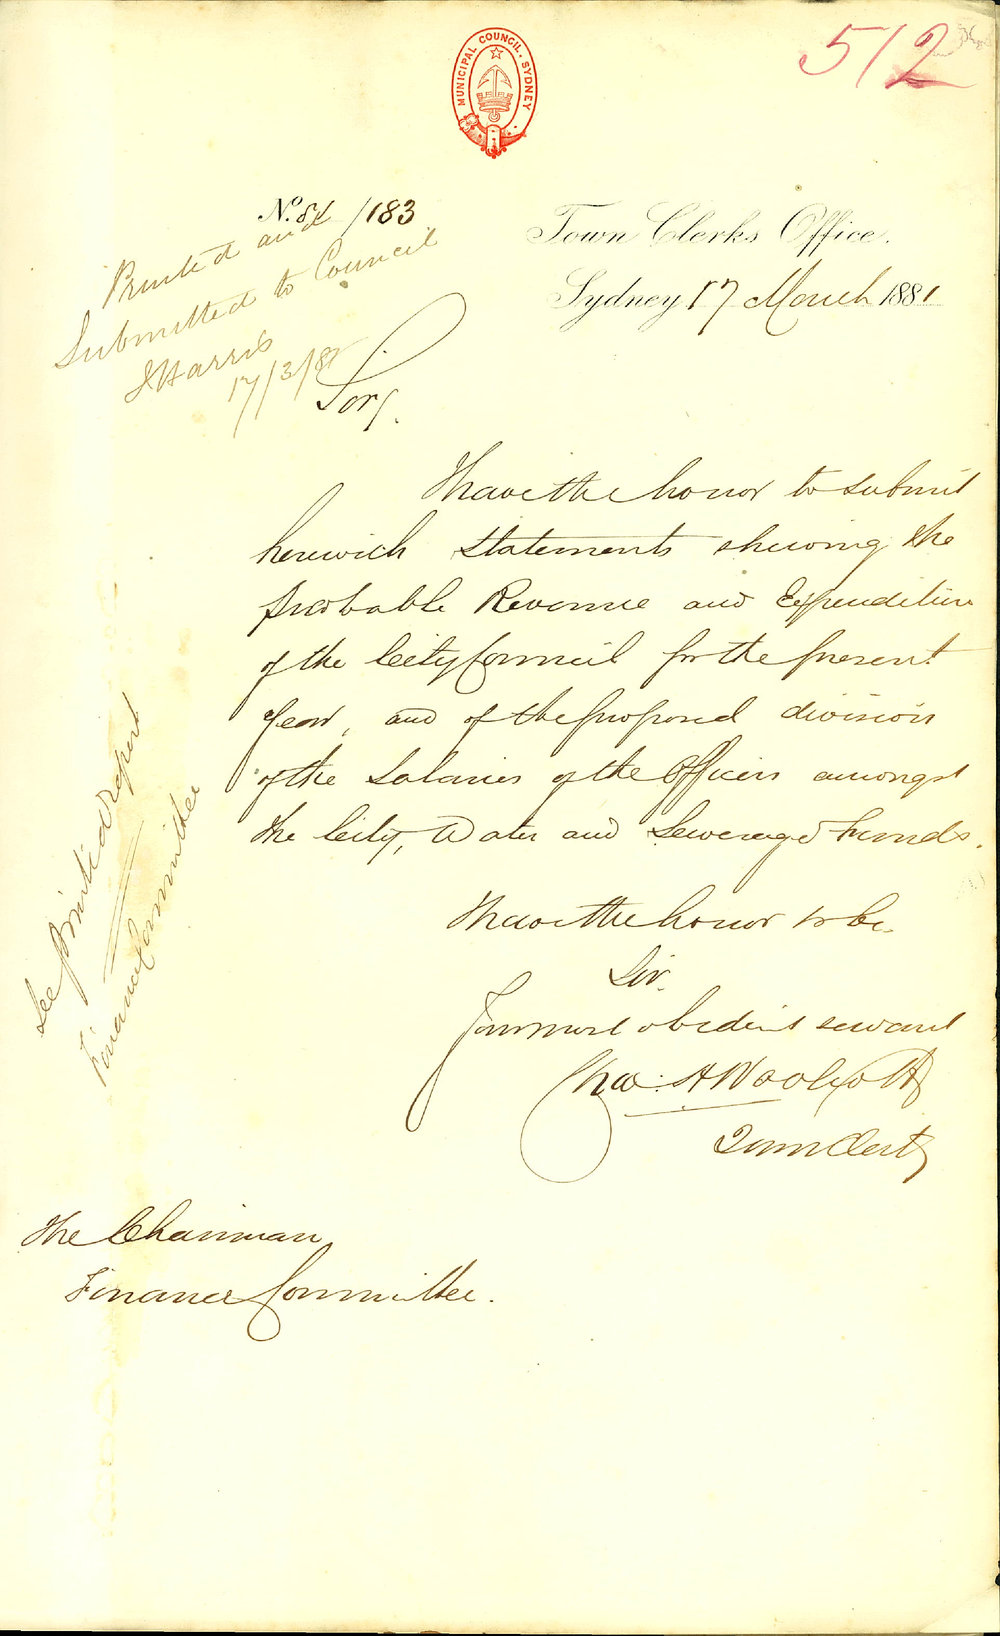 512
MUNICIPAL COUNCIL. SYDNEY
No. 81/183
Town Clerks Office.
Sydney 17 March 1881
Printed and
Submitted to Council
J Harris
17/3/81
Sir,
I have the honor to submit
herewith Statements shewing the
probable Revenue and Expenditure
of the City Council for the present
year, and of the proposed division
of the Salaries of the Officers amongst
the City, Water and Sewerage Funds.
I have the honor to be
Sir.
Your most obedient servant
Chas. H Woolcott
Town Clerk
The Chairman
Finance Committee.
See printed report
Finance Committee